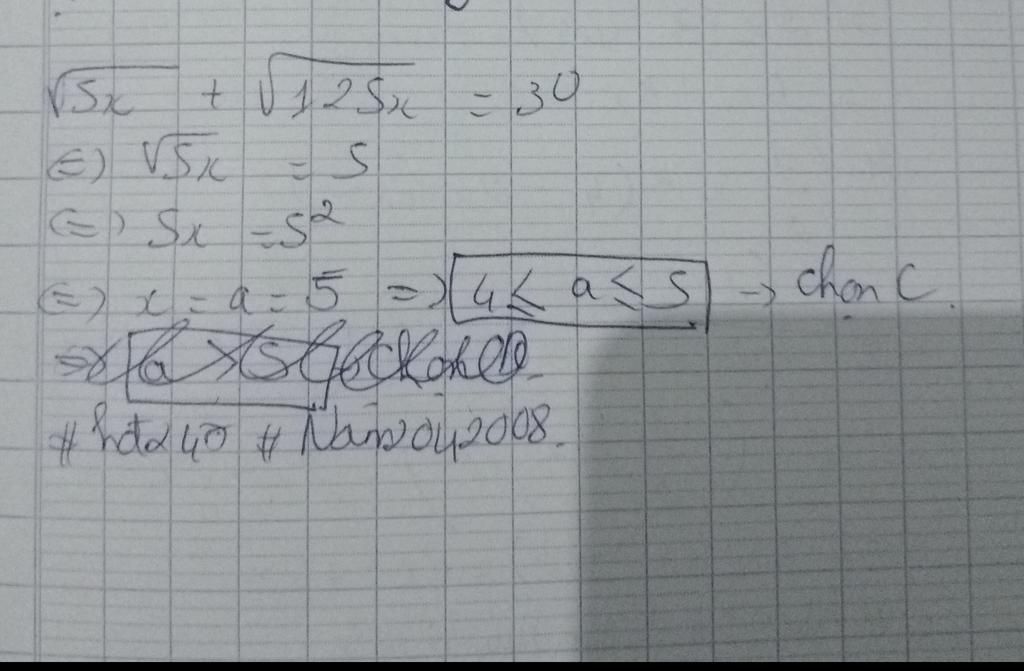 √5x + √125x = 30
⇔ √5x = 5
⇔ 5x = 5²
⇔ x = a = 5 ⇒ 4 ≤ a ≤ 5 → chọn C.
# hdt240 # Nam2042008.